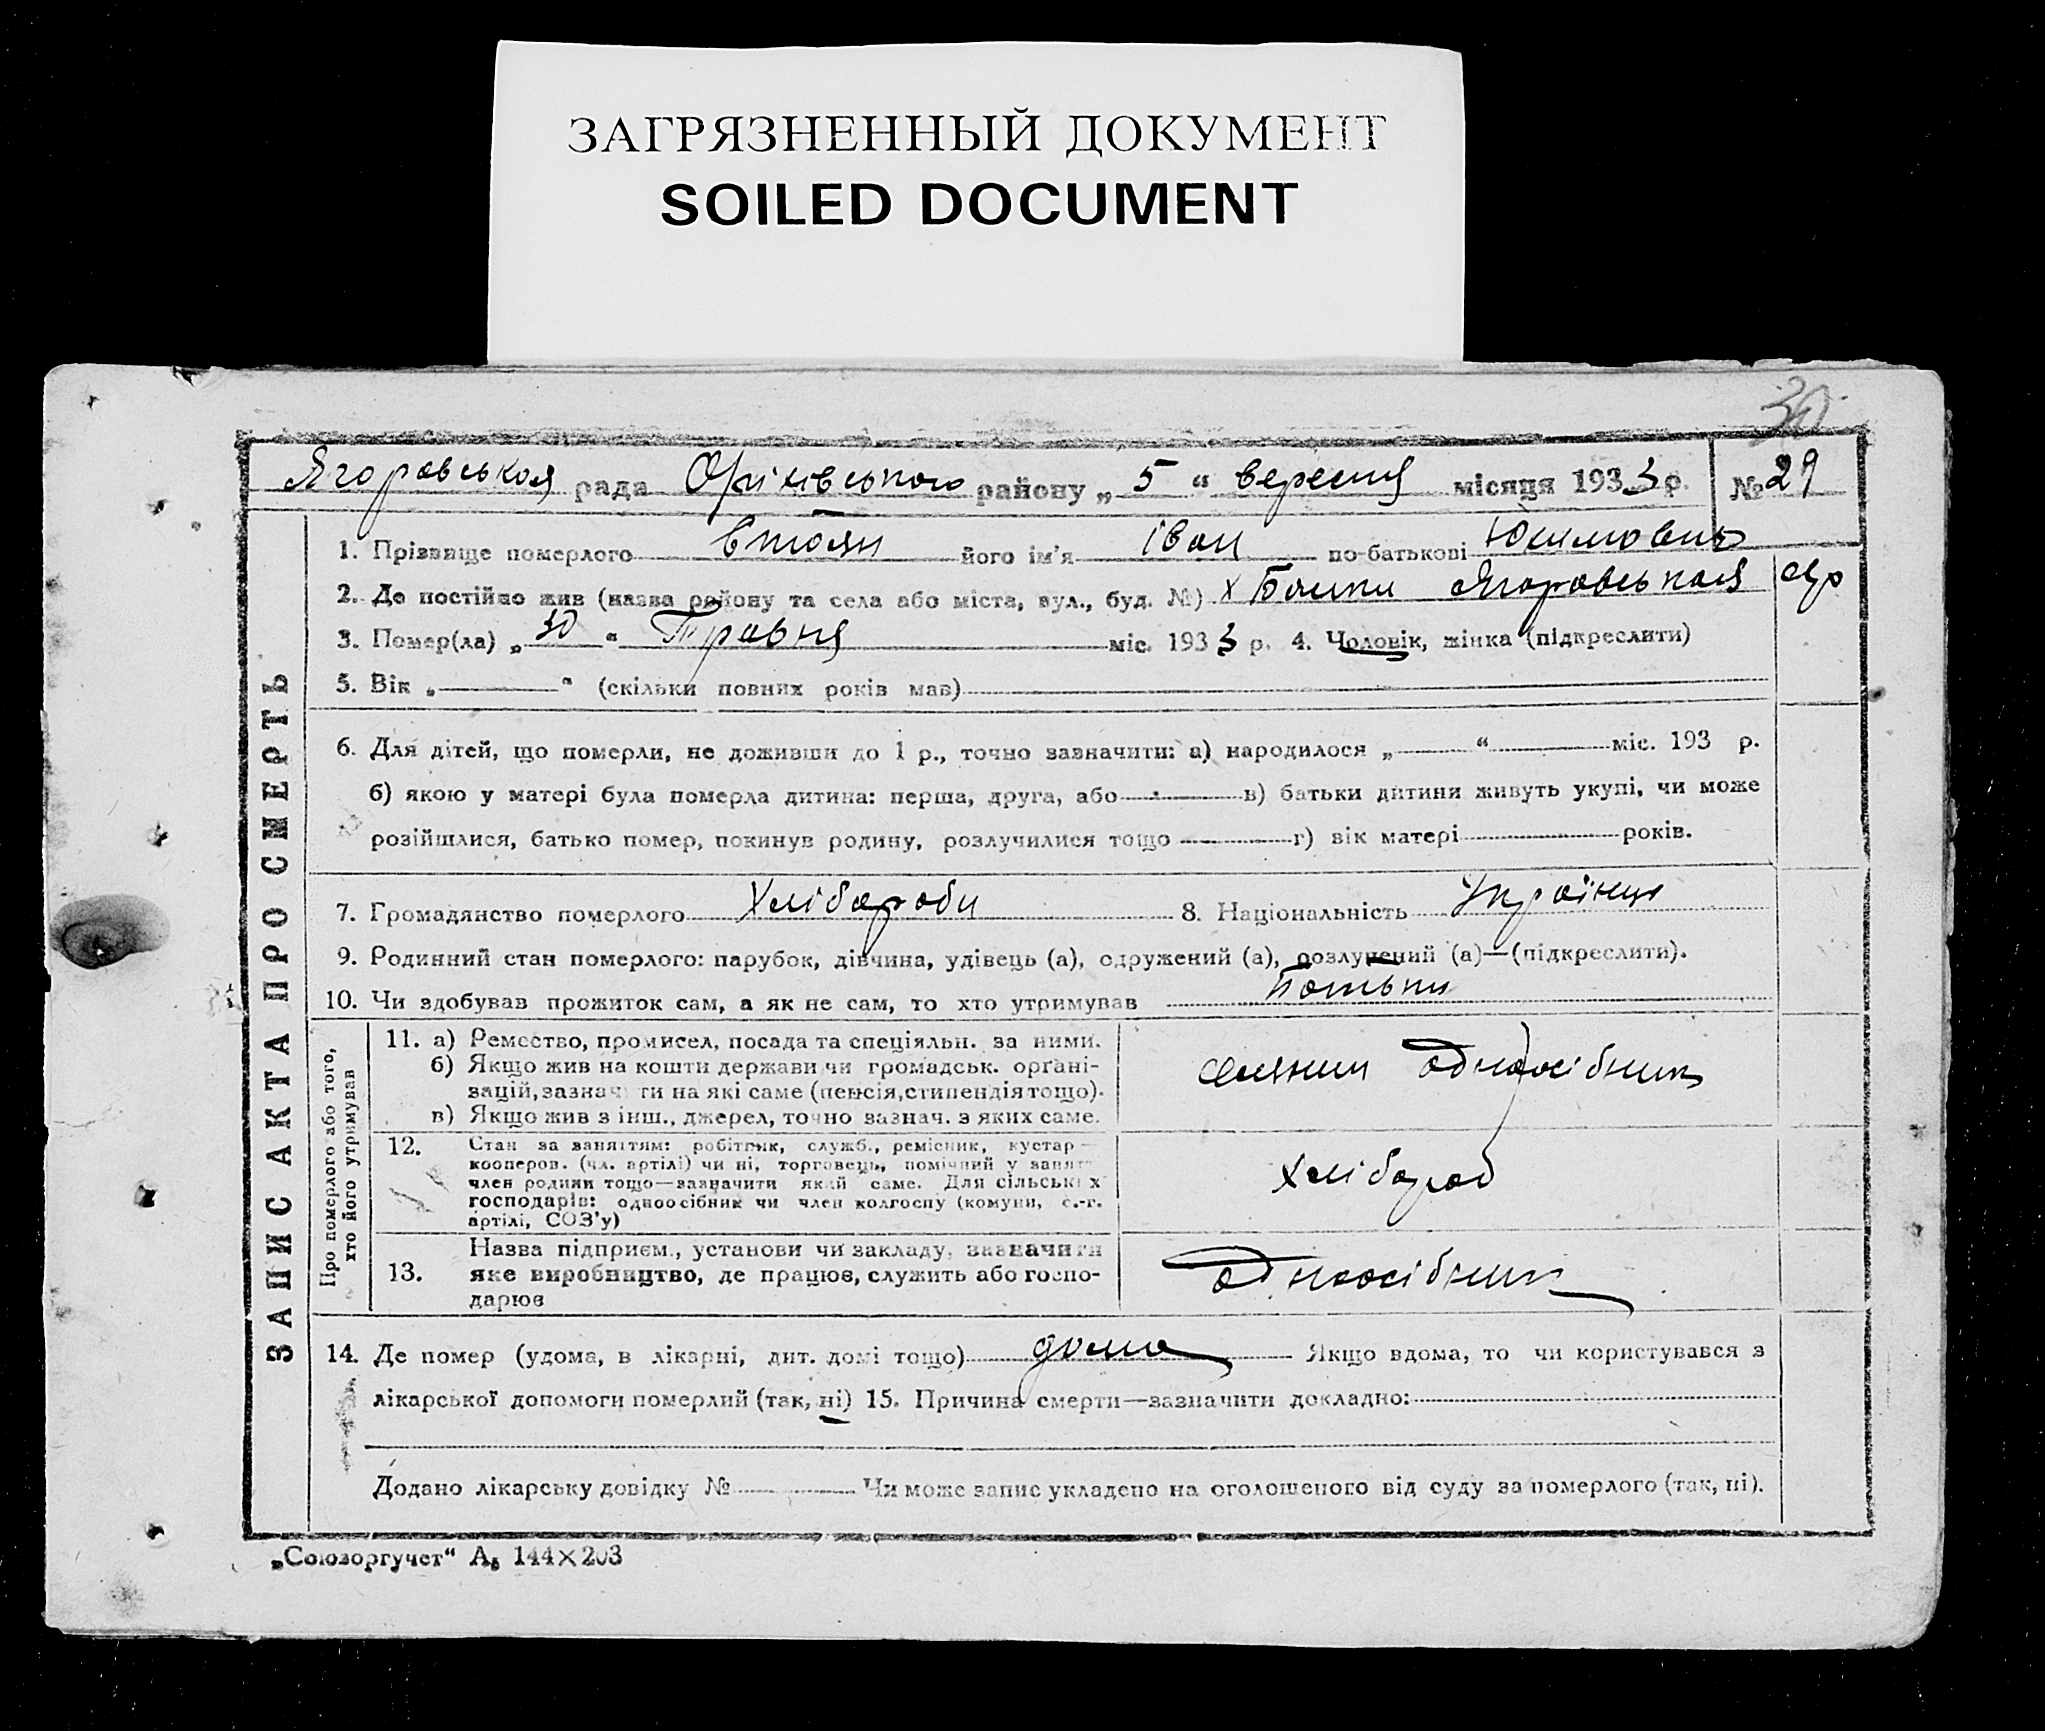 ЗАГРЯЗНЕННЫЙ ДОКУМЕНТ
SOILED DOCUMENT
30
Ягоровська рада Оріхівського району „ 5 “ вересня місяця 1933 р. № 29
1. Прізвище померлого його ім'я Іван по-батькові
2. Де постійно жив (назва району та села або міста, вул., буд. №) х Бошки Ягоровська с/р
3. Помер(ла) „ 30 “ Травня міс. 1933 р. 4. Чоловік, жінка (підкреслити)
5. Вік „ “ (скільки повних років мав)
6. Для дітей, що померли, не доживши до 1 р., точно зазначити: а) народилося „ “ міс. 193 р.
б) якою у матері була померла дитина: перша, друга, або в) батьки дитини живуть укупі, чи може
розійшлися, батько помер, покинув родину, розлучилися тощо г) вік матері років.
7. Громадянство померлого Хлібороби 8. Національність Україньц
9. Родинний стан померлого: парубок, дівчина, удівець (а), одружений (а), розлучений (а)—(підкреслити).
10. Чи здобував прожиток сам, а як не сам, то хто утримував Батьки
ЗАПИС АКТА ПРО СМЕРТЬ
Про померлого або того, хто його утримував
11. а) Ремество, промисел, посада та спеціяльн. за ними.
б) Якщо жив на кошти держави чи громадськ. орґані-
зацій, зазначити на які саме (пенсія, стипендія тощо).
в) Якщо жив з інш., джерел, точно зазнач. з яких саме.
селянин одноосібник
12. Стан за заняттям: робітник, служб., ремісник, кустар—
кооперов. (чл. артілі) чи ні, торговець, помічний у занят
член родини тощо—зазначити який саме. Для сільських
господарів: одноосібник чи член колгоспу (комуни, с.-г.
артілі, СОЗ'у)
хлібороб
13. Назва підприєм., установи чи закладу, зазначити
яке виробництво, де працює, служить або госпо-
дарює
одноосібник
14. Де помер (удома, в лікарні, дит. домі тощо) дома Якщо вдома, то чи користувався з
лікарської допомоги померлий (так, ні) 15. Причина смерти—зазначити докладно:
Додано лікарську довідку № Чи може запис укладено на оголошеного від суду за померлого (так, ні).
„Союзоргучет“ А₅ 144×203